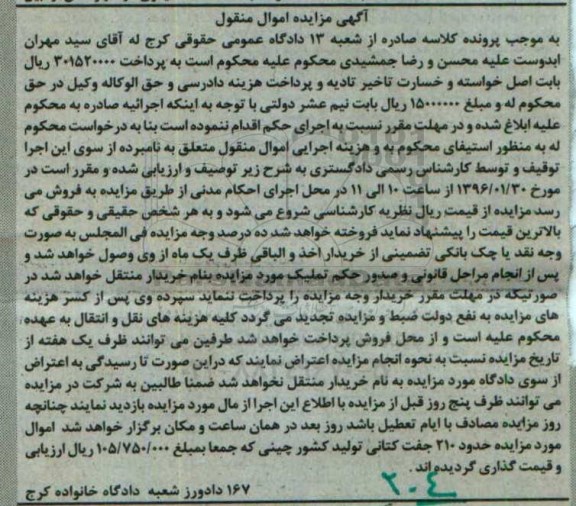 آگهی مزایده اموال منقول
به موجب پرونده کلاسه صادره از شعبه ۱۳ دادگاه عمومی حقوقی کرج له آقای سید مهران
ابدوست علیه محسن و رضا جمشیدی محکوم علیه محکوم است به پرداخت ۳۰۱۵۲۰۰۰۰ ریال
بابت اصل خواسته و خسارت تاخیر تادیه و پرداخت هزینه دادرسی و حق الوکاله وکیل در حق
محکوم له و مبلغ ۱۵۰۰۰۰۰۰ ریال بابت نیم عشر دولتی با توجه به اینکه اجرائیه صادره به محکوم
علیه ابلاغ شده و در مهلت مقرر نسبت به اجرای حکم اقدام ننموده است بنا به درخواست محکوم
له به منظور استیفای محکوم به و هزینه اجرایی اموال منقول متعلق به نامبرده از سوی این اجرا
توقیف و توسط کارشناس رسمی دادگستری به شرح زیر توصیف و ارزیابی شده و مقرر است در
مورخ ۱۳۹۶/۰۱/۳۰ از ساعت ۱۰ الی ۱۱ در محل اجرای احکام مدنی از طریق مزایده به فروش می
رسد مزایده از قیمت ریال نظریه کارشناسی شروع می شود و به هر شخص حقیقی و حقوقی که
بالاترین قیمت را پیشنهاد نماید فروخته خواهد شد ده درصد وجه مزایده فی المجلس به صورت
وجه نقد یا چک بانکی تضمینی از خریدار اخذ و الباقی ظرف یک ماه از وی وصول خواهد شد و
پس از انجام مراحل قانونی و صدور حکم تملیک مورد مزایده بنام خریدار منتقل خواهد شد در
صورتیکه در مهلت مقرر خریدار وجه مزایده را پرداخت ننماید سپرده وی پس از کسر هزینه
های مزایده به نفع دولت ضبط و مزایده تجدید می گردد کلیه هزینه های نقل و انتقال به عهده
محکوم علیه است و از محل فروش پرداخت خواهد شد طرفین می توانند ظرف یک هفته از
تاریخ مزایده نسبت به نحوه انجام مزایده اعتراض نمایند که دراین صورت تا رسیدگی به اعتراض
از سوی دادگاه مورد مزایده به نام خریدار منتقل نخواهد شد ضمنا طالبین به شرکت در مزایده
می توانند ظرف پنج روز قبل از مزایده با اطلاع این اجرا از مال مورد مزایده بازدید نمایند چنانچه
روز مزایده مصادف با ایام تعطیل باشد روز بعد در همان ساعت و مکان برگزار خواهد شد اموال
مورد مزایده حدود ۲۱۰ جفت کتانی تولید کشور چینی که جمعا بمبلغ ۱۰۵/۷۵۰/۰۰۰ ریال ارزیابی
و قیمت گذاری گردیده اند.
۱۶۷ دادورز شعبه دادگاه خانواده کرج
۲۰۴